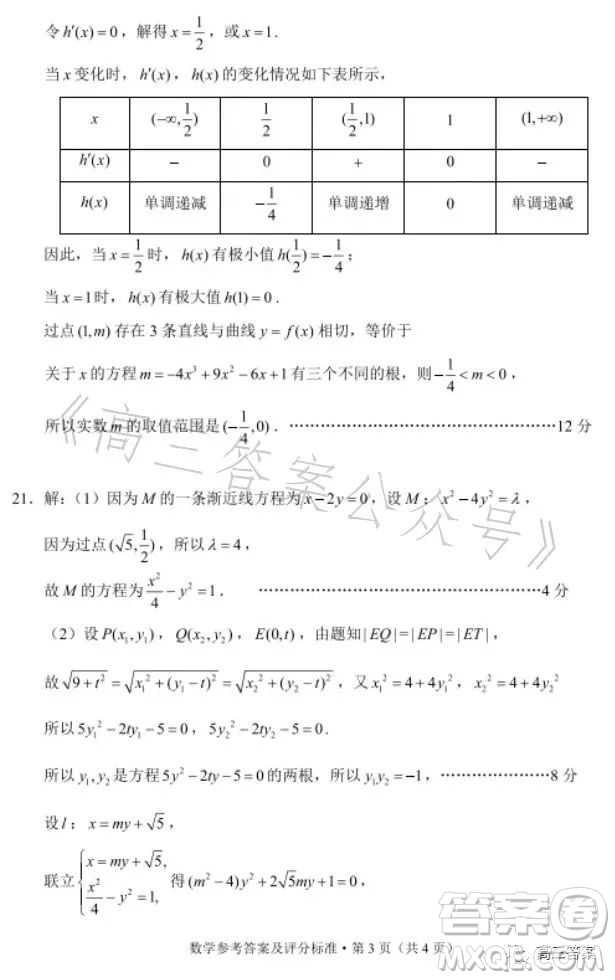 令 h′(x) = 0，解得 x = 1/2，或 x = 1.
当 x 变化时，h′(x)，h(x) 的变化情况如下表所示，
x (−∞, 1/2) 1/2 (1/2, 1) 1 (1, +∞)
h′(x) − 0 + 0 −
h(x) 单调递减 −1/4 单调递增 0 单调递减
因此，当 x = 1/2 时，h(x) 有极小值 h(1/2) = −1/4；
当 x = 1 时，h(x) 有极大值 h(1) = 0.
过点 (1, m) 存在 3 条直线与曲线 y = f(x) 相切，等价于
关于 x 的方程 m = −4x³ + 9x² − 6x + 1 有三个不同的根，则 −1/4 < m < 0，
所以实数 m 的取值范围是 (−1/4, 0). ………………………………………12 分
21．解：（1）因为 M 的一条渐近线方程为 x − 2y = 0，设 M：x² − 4y² = λ，
因为过点 (√5, 1/2)，所以 λ = 4，
故 M 的方程为 x²/4 − y² = 1. ………………………………………4 分
（2）设 P(x₁, y₁)，Q(x₂, y₂)，E(0, t)，由题知 |EQ| = |EP| = |ET|，
故 √(9 + t²) = √(x₁² + (y₁ − t)²) = √(x₂² + (y₂ − t)²)，又 x₁² = 4 + 4y₁²，x₂² = 4 + 4y₂²
所以 5y₁² − 2ty₁ − 5 = 0，5y₂² − 2ty₂ − 5 = 0.
所以 y₁, y₂ 是方程 5y² − 2ty − 5 = 0 的两根，所以 y₁y₂ = −1，…………………8 分
设 l：x = my + √5，
联立 { x = my + √5, x²/4 − y² = 1, 得 (m² − 4)y² + 2√5my + 1 = 0，
数学参考答案及评分标准・第 3 页（共 4 页）
《高二答案公众号》
答案圈
MXQE.COM
高三答案